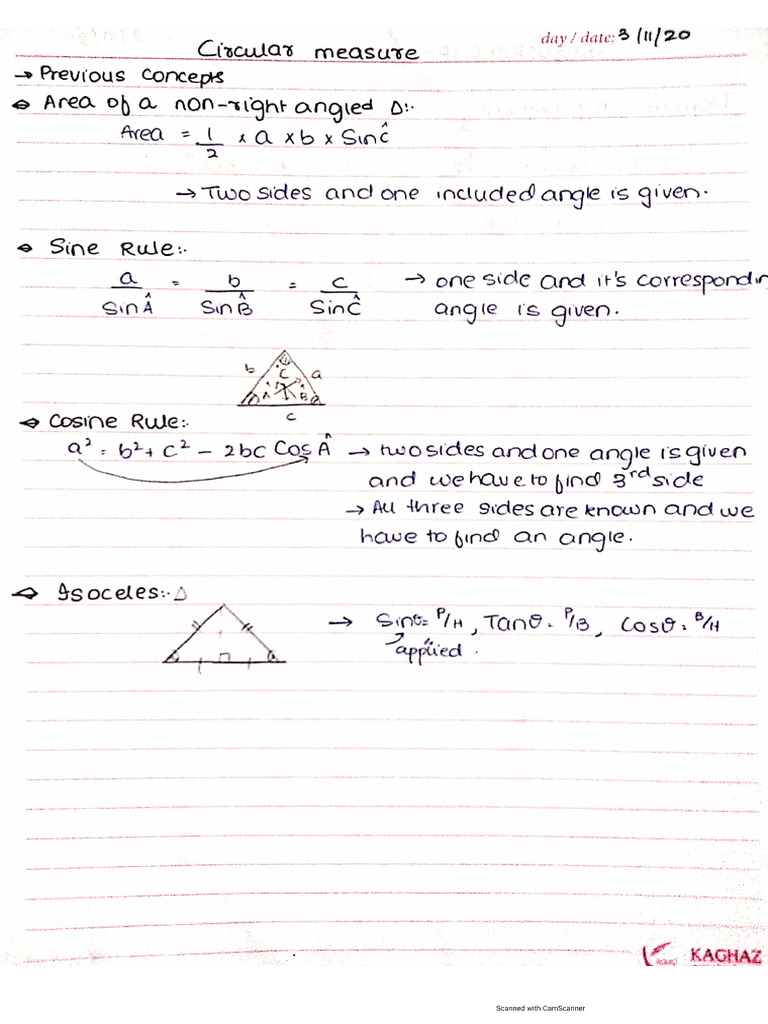 day / date: 3/11/20
Circular measure
→ Previous Concepts
⇔ Area of a non-right angled Δ:-
Area = 1/2 × a × b × Sin Ĉ
→ Two sides and one included angle is given.
⇔ Sine Rule:-
a/Sin Â = b/Sin B̂ = c/Sin Ĉ → one side and it's correspondin
angle is given.
b C a
A B
c
⇔ Cosine Rule:-
a² = b² + c² - 2bc Cos Â → two sides and one angle is given
and we have to find 3rd side
→ All three sides are known and we
have to find an angle.
⇔ Isoceles:- Δ
→ Sinθ= P/H, Tanθ= P/B, Cosθ= B/H
applied.
KAGHAZ
Scanned with CamScanner